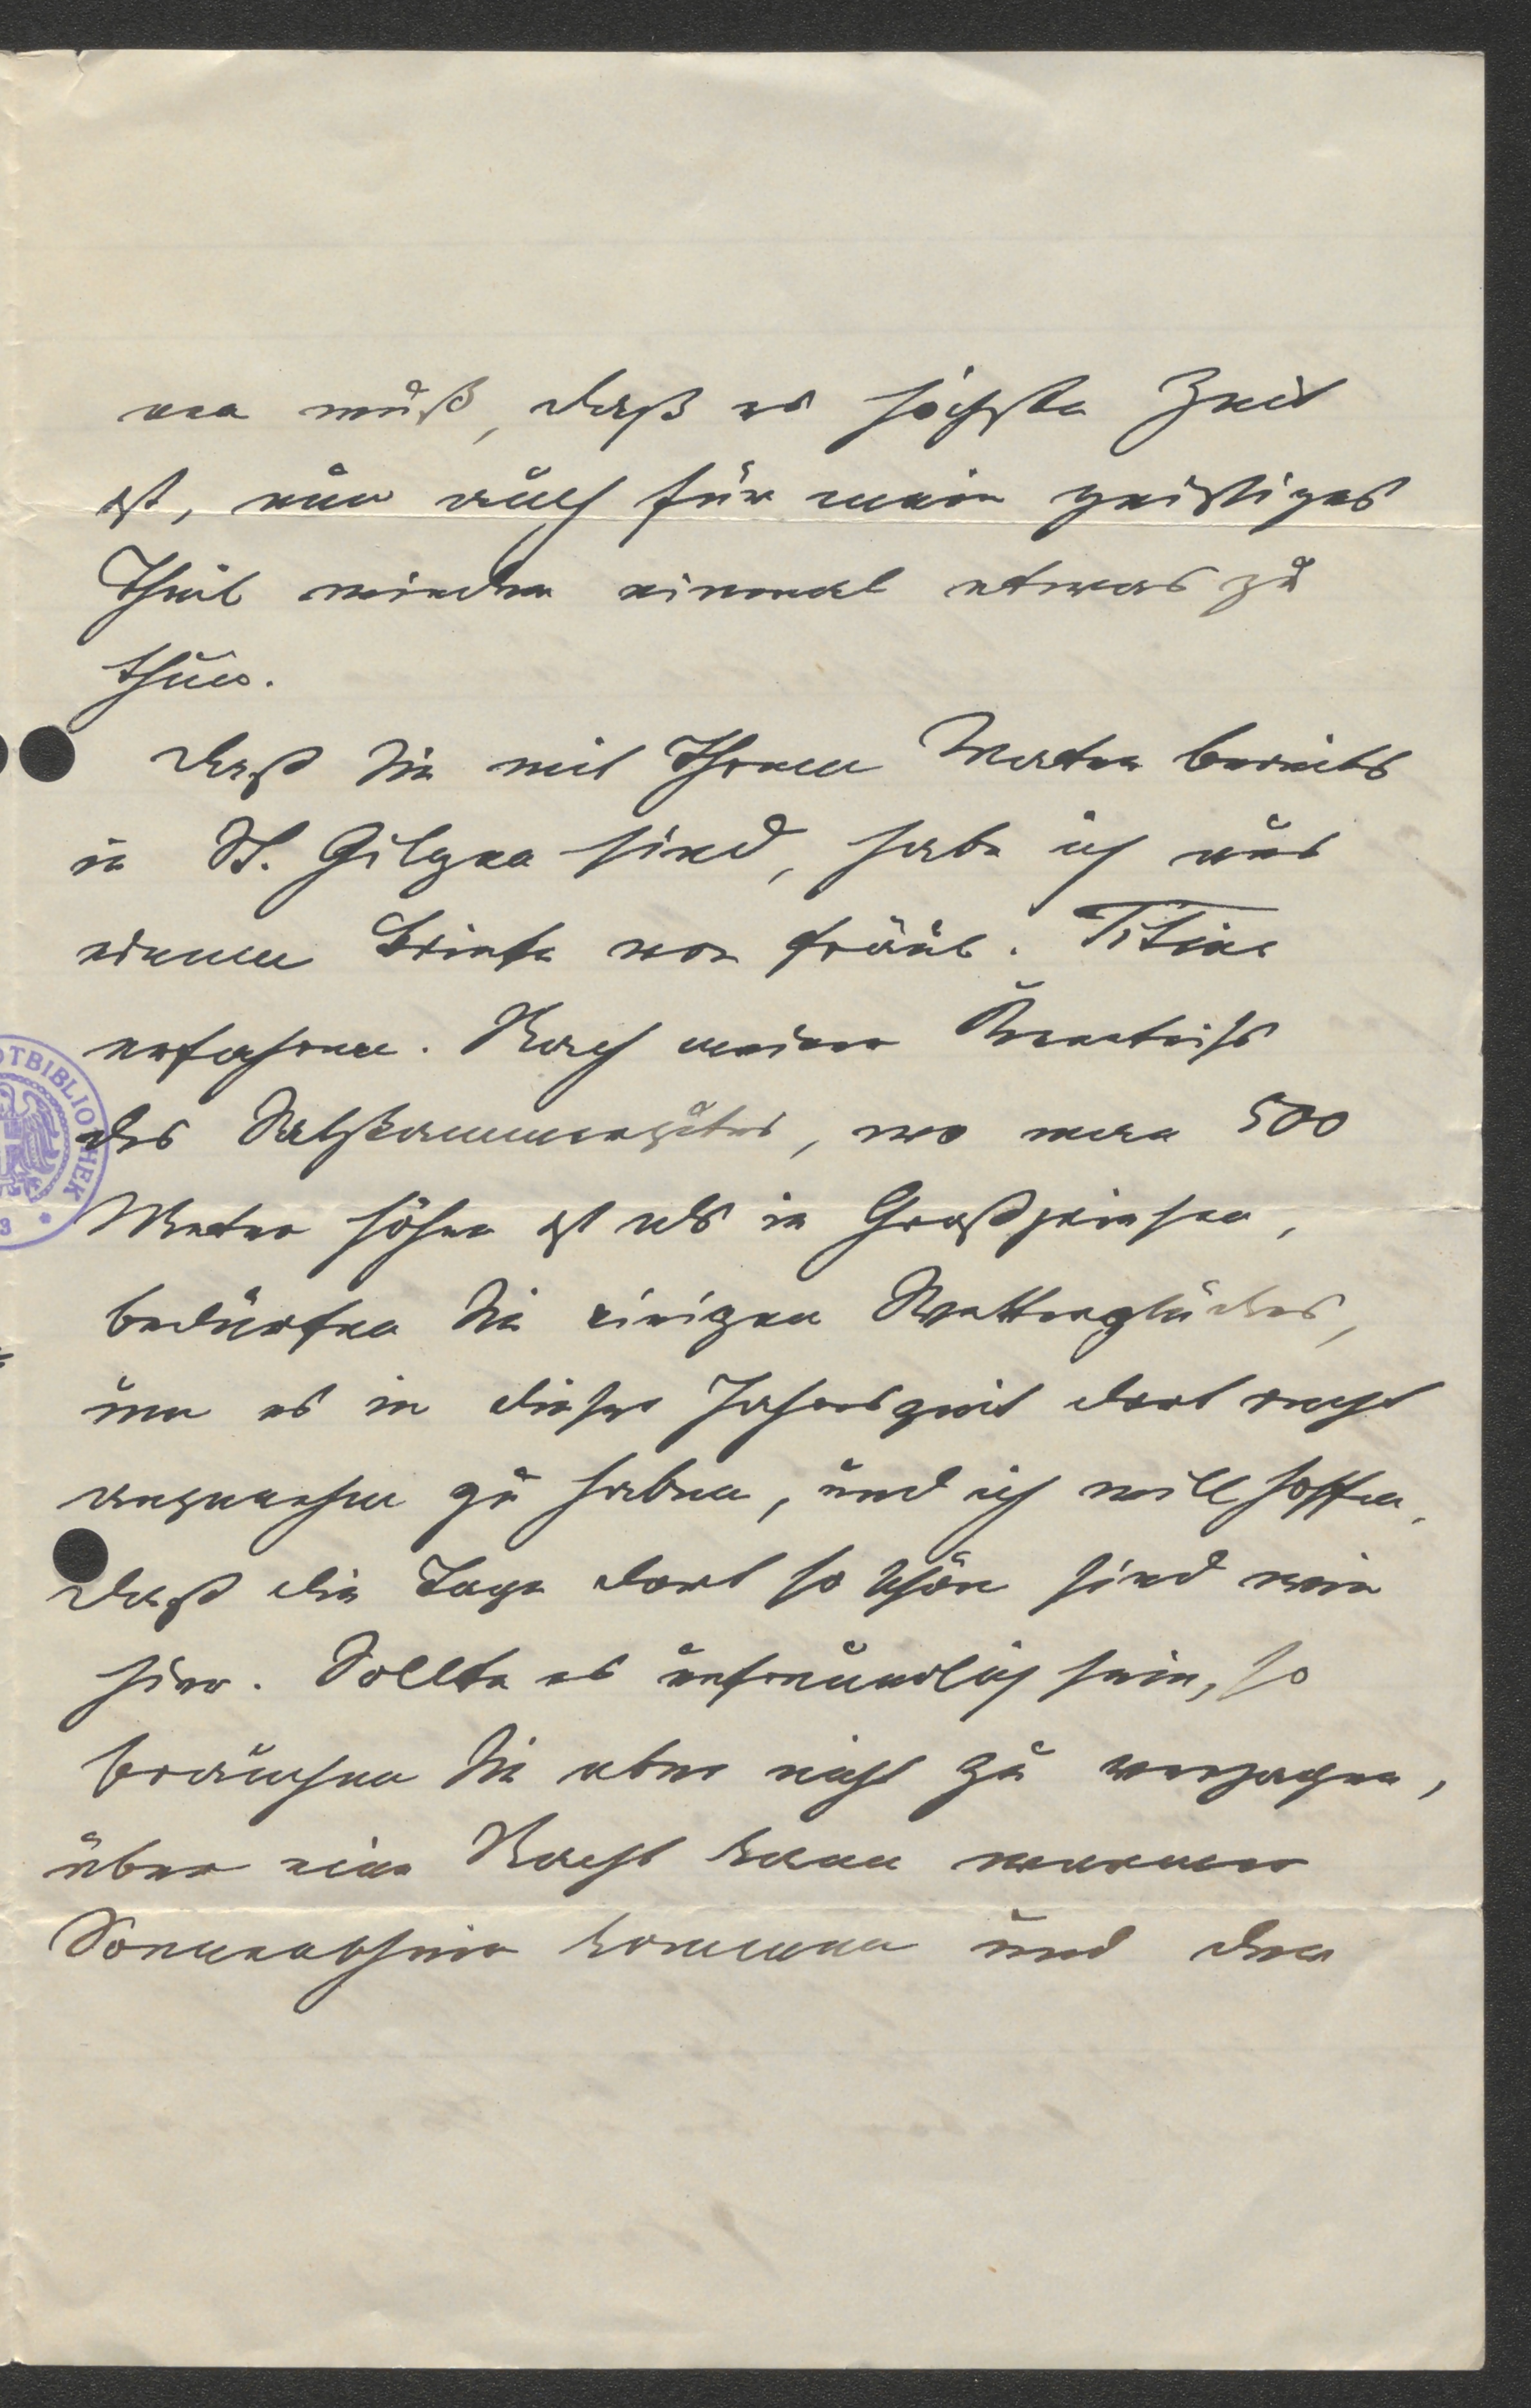 nen muß, daß es höchste Zeit
ist, nun auch für mein geistiges
Theil wieder einmal etwas zu
thun.
Daß Sie mit Ihrem Vater bereits
in St. Gilgen sind, habe ich aus
einem Briefe von Fräul. Titine
erfahren. Nach meiner Kenntniß
des Salzkammergutes, wo man 500
Meter höher ist als in Großjeinsen,
bedürfen Sie einigen Wetterglückes,
um es in dieser Jahreszeit dort recht
angenehm zu haben, und ich will hoffen,
daß die Tage dort so schön sind wie
hier. Sollte es unfreundlich sein, so
brauchen Sie aber nicht zu verzagen,
über eine Nacht kann warmer
Sonnenschein kommen und den
OTBIBLIOTHEK